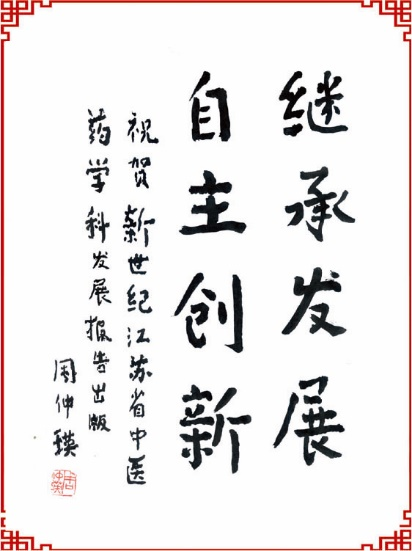 继承发展
自主创新
祝贺新世纪江苏省中医
药学科发展报告出版
周仲瑛